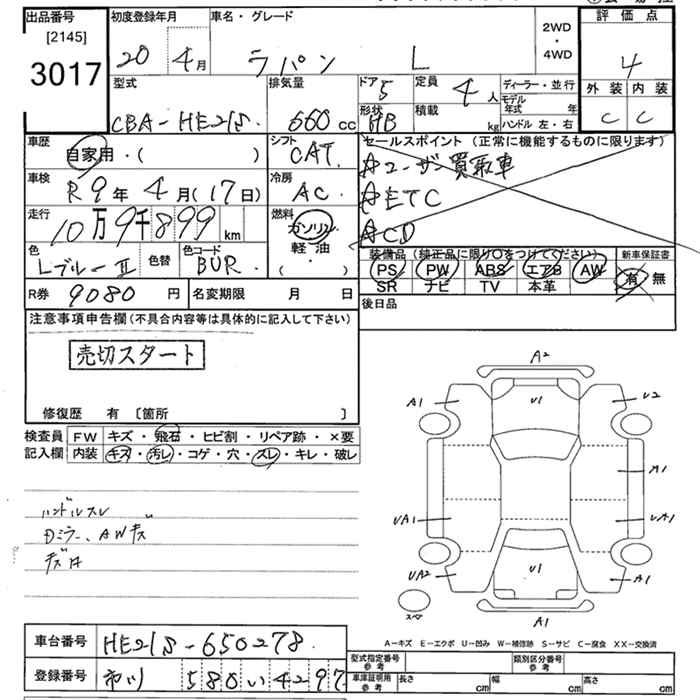 出品番号 初度登録年月 車名・グレード 2WD・4WD 評価点
[2145]
3017 20年 4月 ラパン L 4
型式 排気量 ドア 5 定員 4人 ディーラー・並行 外装 内装
CBA-HE21S 660cc 形状 HB 積載 kg モデル年式 年 C C
ハンドル 左・右
車歴 自家用・( ) シフト CAT セールスポイント (正常に機能するものに限ります)
車検 R9年 4月(17日) 冷房 AC ユーザー買取車
走行 10万9千899km 燃料 ガソリン・軽・油・( ) ETC
CD
色 Lブルー II 色替 色コード BUR 装備品(純正品に限り○をつけてください) 新車保証書
PS PW ABS エアB AW 有 無
SR ナビ TV 本革
R券 9080円 名変期限 月 日 後日品
注意事項申告欄(不具合内容等は具体的に記入して下さい)
売切スタート
修復歴 有 〔箇所 〕
検査員 FW キズ・飛石・ヒビ割・リペア跡・×要
記入欄 内装 キズ・汚レ・コゲ・穴・スレ・キレ・破レ
ハンドルスレ
Dミラー、AWキズ
A2
A1 U1 U2
A1
UA1 UA1
UA2 U1 A1
スペア A1
A-キズ E-エクボ U-凹み W-補修跡 S-サビ C-腐食 XX-交換済
車台番号 HE21S-650278 型式指定番号 参考 類別区分番号 参考
登録番号 市川 580 い 4297 車庫証明用 参考 長さ cm 幅 cm 高さ cm